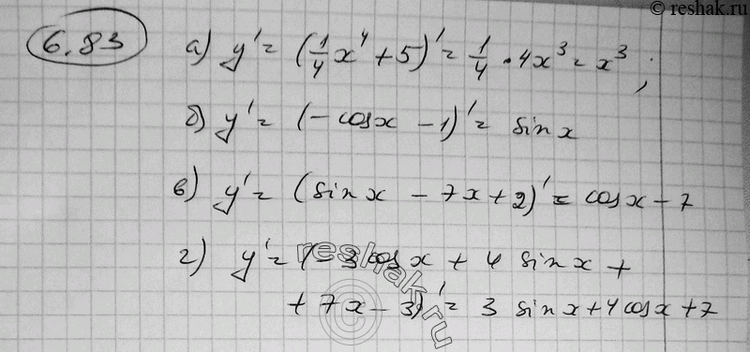 © reshak.ru
6.83 а) y' = (1/4 x⁴ + 5)' = 1/4 · 4x³ = x³ ;
б) y' = (-cosx - 1)' = sinx
в) y' = (sinx - 7x + 2)' = cosx - 7
г) y' = (-3cosx + 4 sinx +
+ 7x - 3)' = 3 sinx + 4cosx + 7
reshak.ru
©